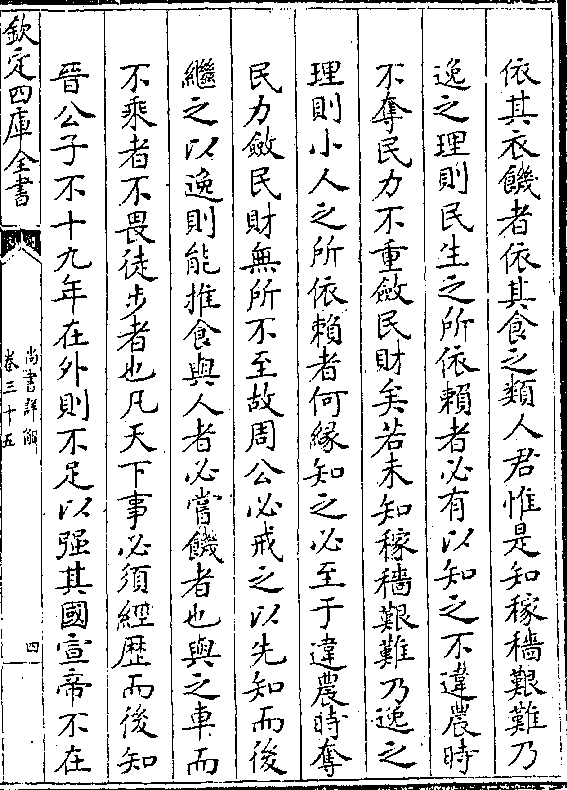 依其衣饑者依其食之類人君惟是知稼穡艱難乃
逸之理則民生之所依賴者必有以知之不違農時
不奪民力不重斂民財矣若未知稼穡艱難乃逸之
理則小人之所依賴者何縁知之必至于違農時奪
民力斂民財無所不至故周公必戒之以先知而後
繼之以逸則能推食與人者必嘗饑者也與之車而
不乘者不畏徒步者也凡天下事必須經歴而後知
晉公子不十九年在外則不足以强其國宣帝不在
欽定四庫全書
尚書詳解
卷三十五
四